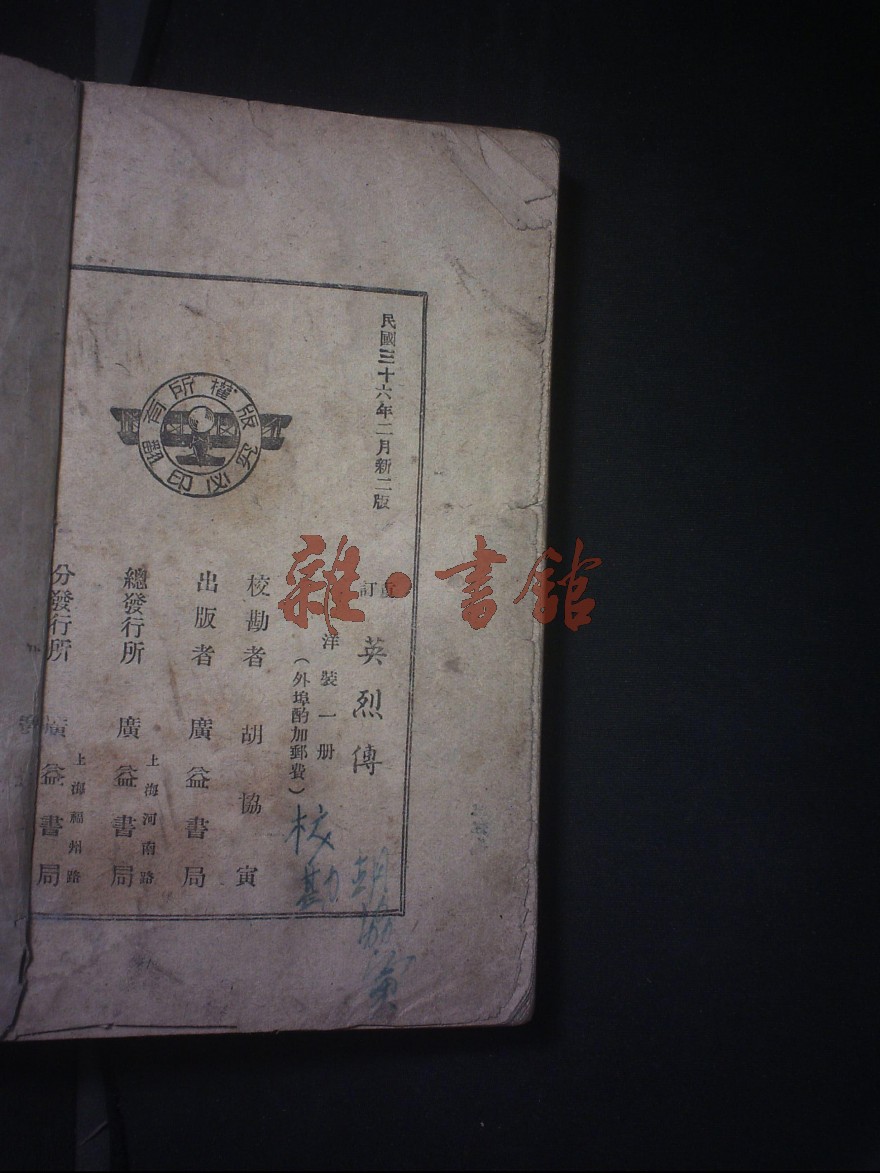 民國三十六年二月新二版
重訂 英烈傳
洋裝一册
(外埠酌加郵費)
校勘者 胡協寅
出版者 廣益書局
總發行所 上海河南路 廣益書局
分發行所 上海福州路 廣益書局
版權所有 翻印必究
雜·書館
校勘
胡協寅